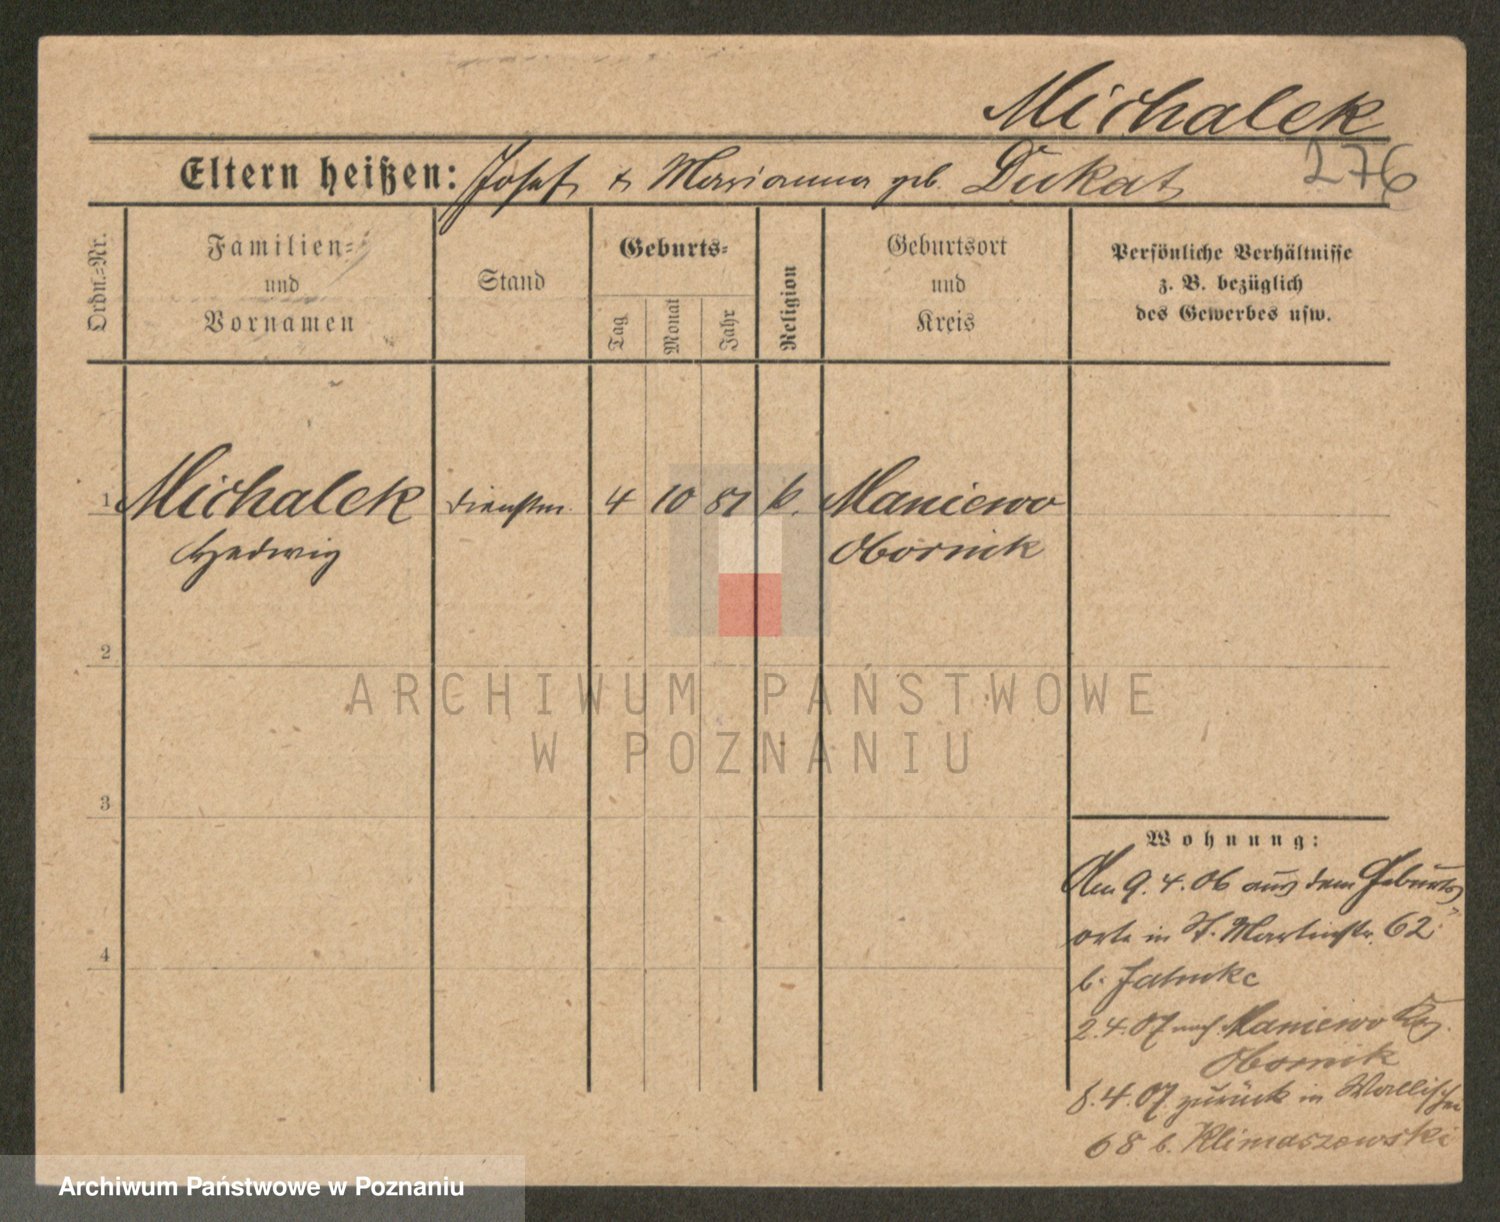 Michalek
276
Eltern heißen: Josef & Marianna geb. Dukat
Ordn.=Nr.
Familien=
und
Vornamen
Stand
Geburts=
Tag
Monat
Jahr
Religion
Geburtsort
und
Kreis
Persönliche Verhältnisse
z. B. bezüglich
des Gewerbes usw.
1 Michalek Dienstm. 4 10 87 k. Maniewo
Hedwig Obornik
2
3
4
Wohnung:
Am 9.4.06 aus dem Geburts
orte in St. Martinstr. 62
b.
2.4.07 nach Maniewo Krs.
Obornik
8.4.07 zurück in Wallischei
68 b. Klimaszewski
ARCHIWUM PAŃSTWOWE
W POZNANIU
Archiwum Państwowe w Poznaniu